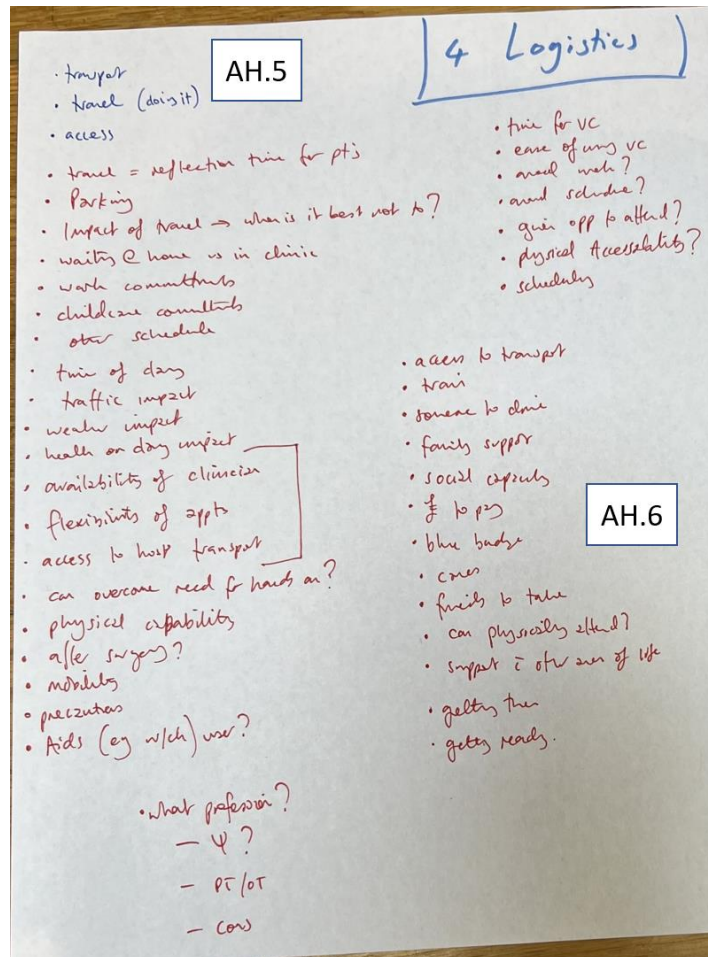 AH.5
4 Logistics
· transport
· travel (doing it)
· access
· travel = reflection time for pts
· Parking
· Impact of travel → when is it best not to?
· waiting @ home vs in clinic
· work commitments
· childcare commitments
· other schedule
· time of day
· traffic impact
· weather impact
· health on day impact
· availability of clinician
· flexibility of appts
· access to hosp transport
· can overcome need for hands on?
· physical capability
· after surgery?
· mobility
· precautions
· Aids (eg w/ch) user?
· what profession?
– Ψ ?
– PT/OT
– cons
· time for VC
· ease of using VC
· around work?
· around schedule?
· given opp to attend?
· physical Accessability?
· scheduling
· access to transport
· train
· someone to drive
· family support
· social capacity
· £ to pay
· blue badge
· carers
· friends to take
· can physically attend?
· support c̄ other areas of life
· getting there
· getting ready.
AH.6